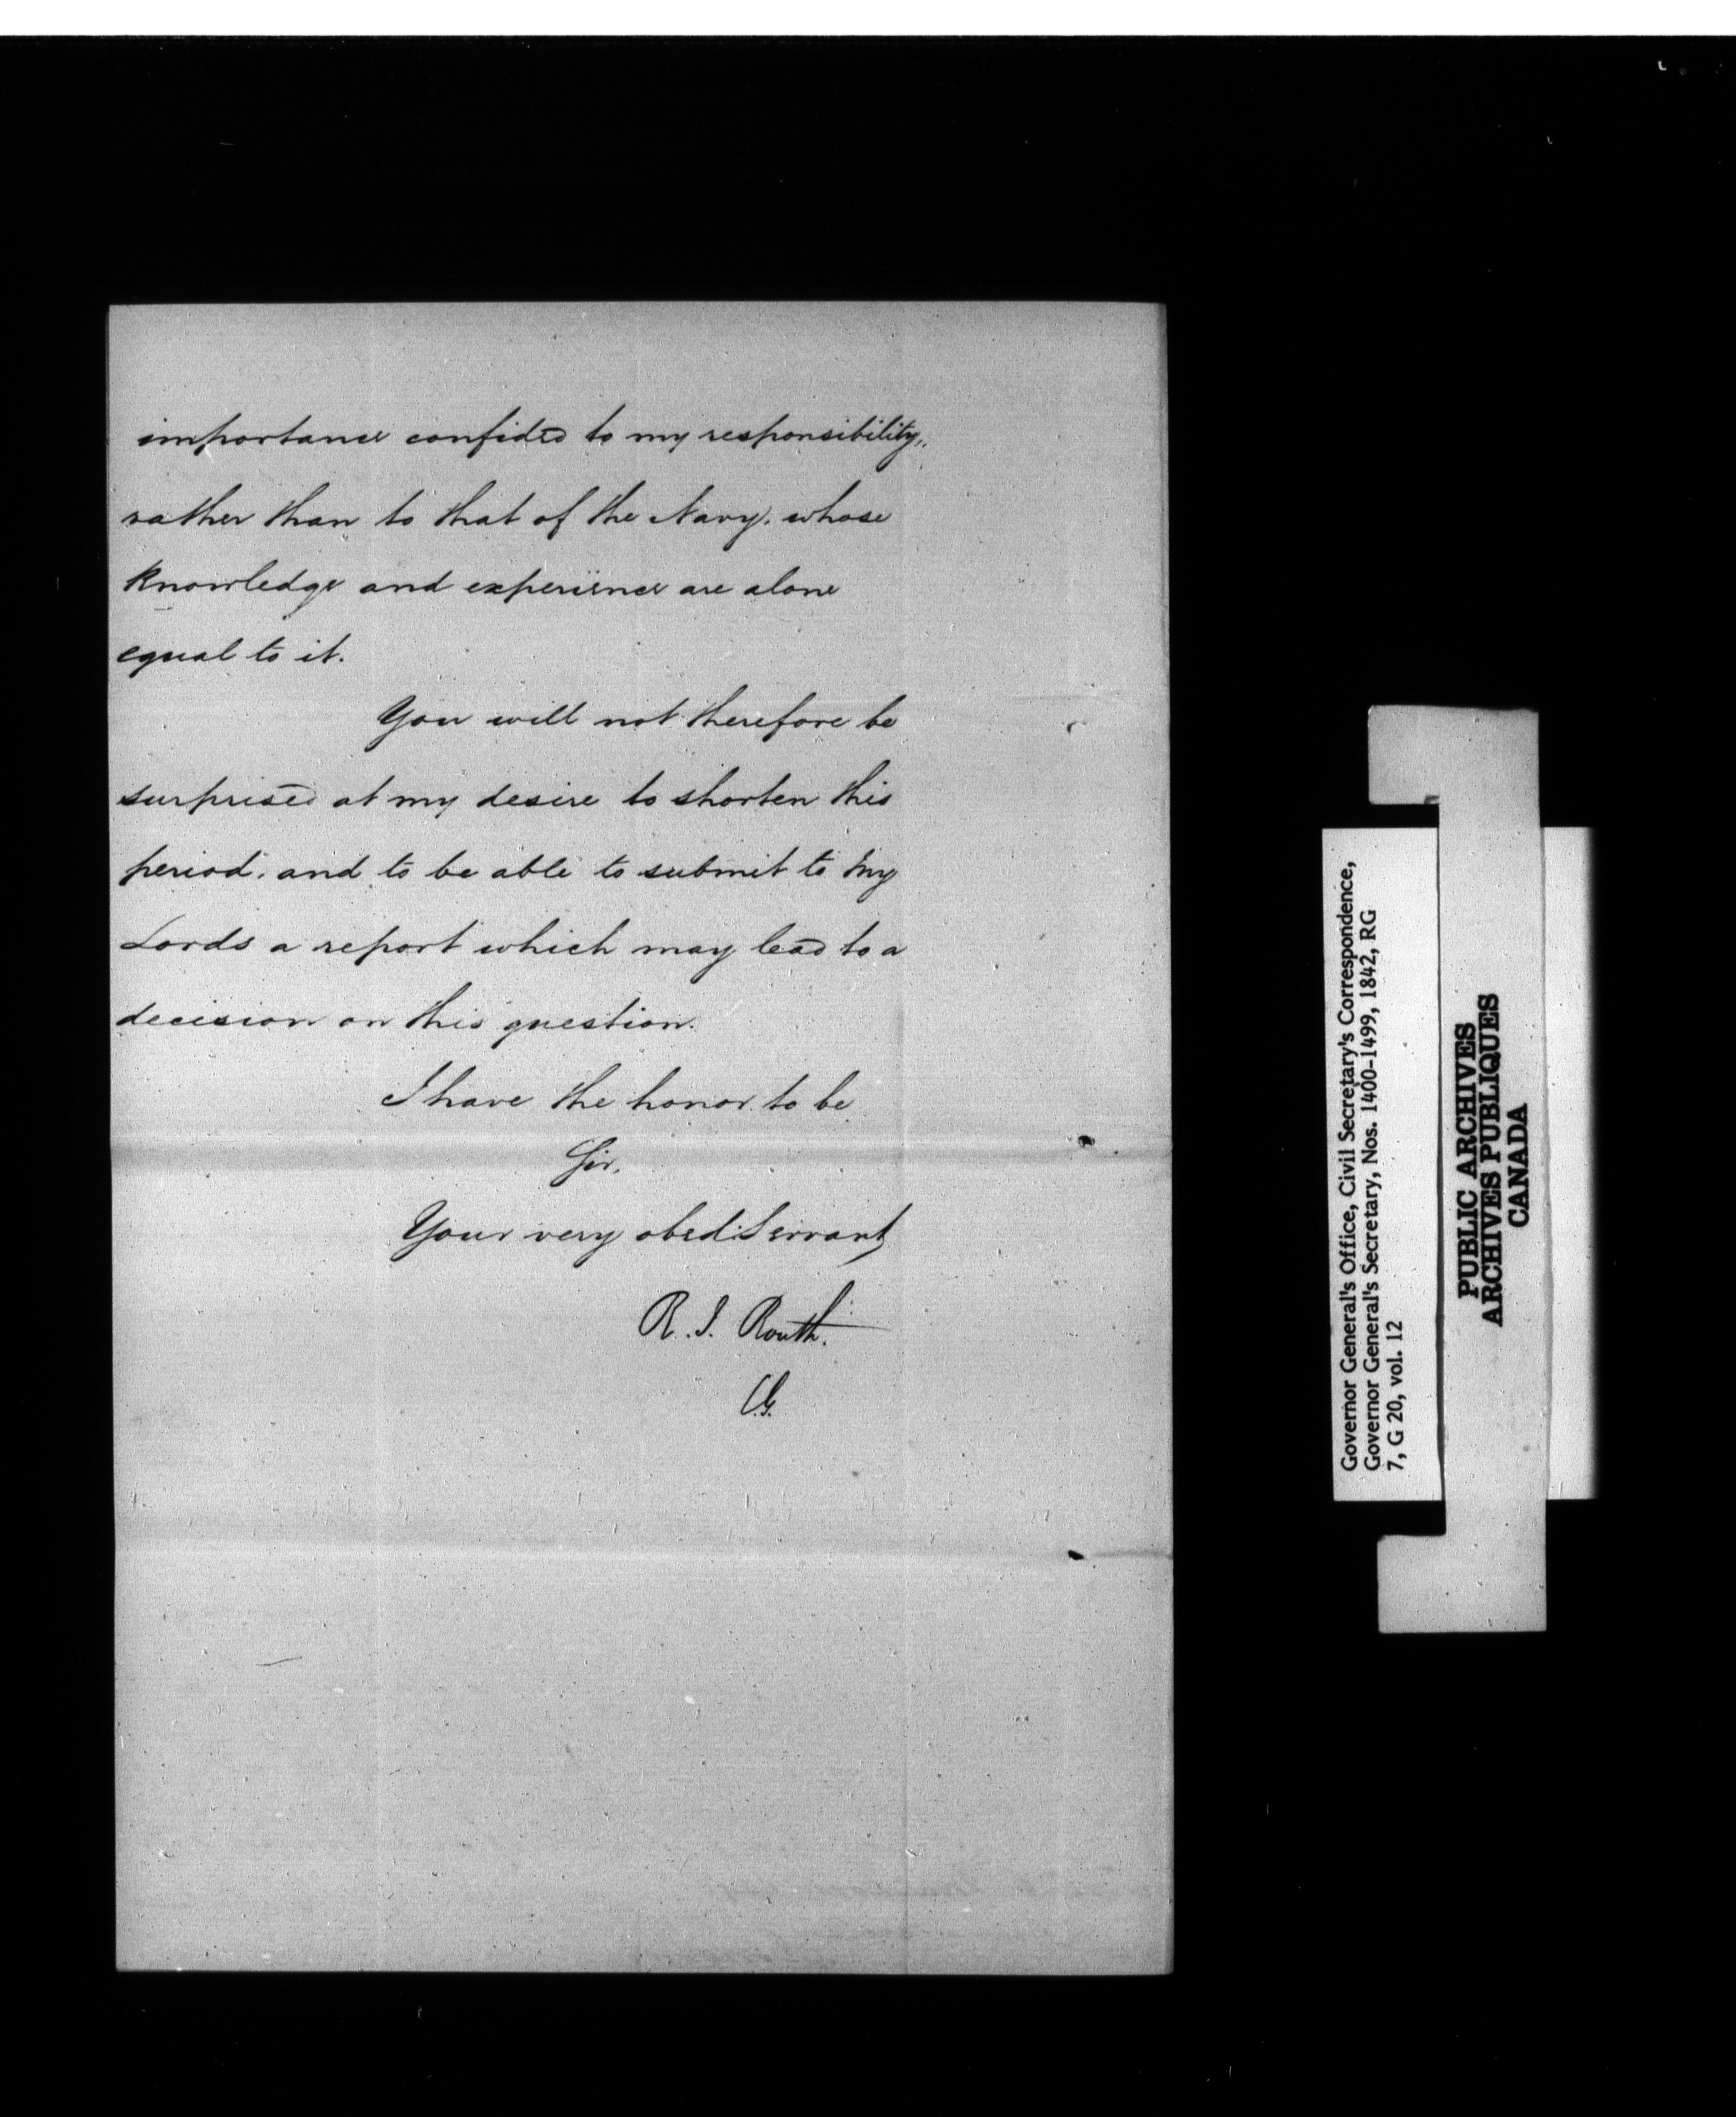 importance confided to my responsibility,
rather than to that of the Navy, whose
knowledge and experience are alone
equal to it.
You will not therefore be
surprised at my desire to shorten this
period, and to be able to submit to My
Lords a report which may lead to a
decision on this question.
I have the honor to be
Sir,
Your very obedt Servant
R. I. Routh.
C.G.
Governor General's Office, Civil Secretary's Correspondence,
Governor General's Secretary, Nos. 1400-1499, 1842, RG
7, G 20, vol. 12
PUBLIC ARCHIVES
ARCHIVES PUBLIQUES
CANADA